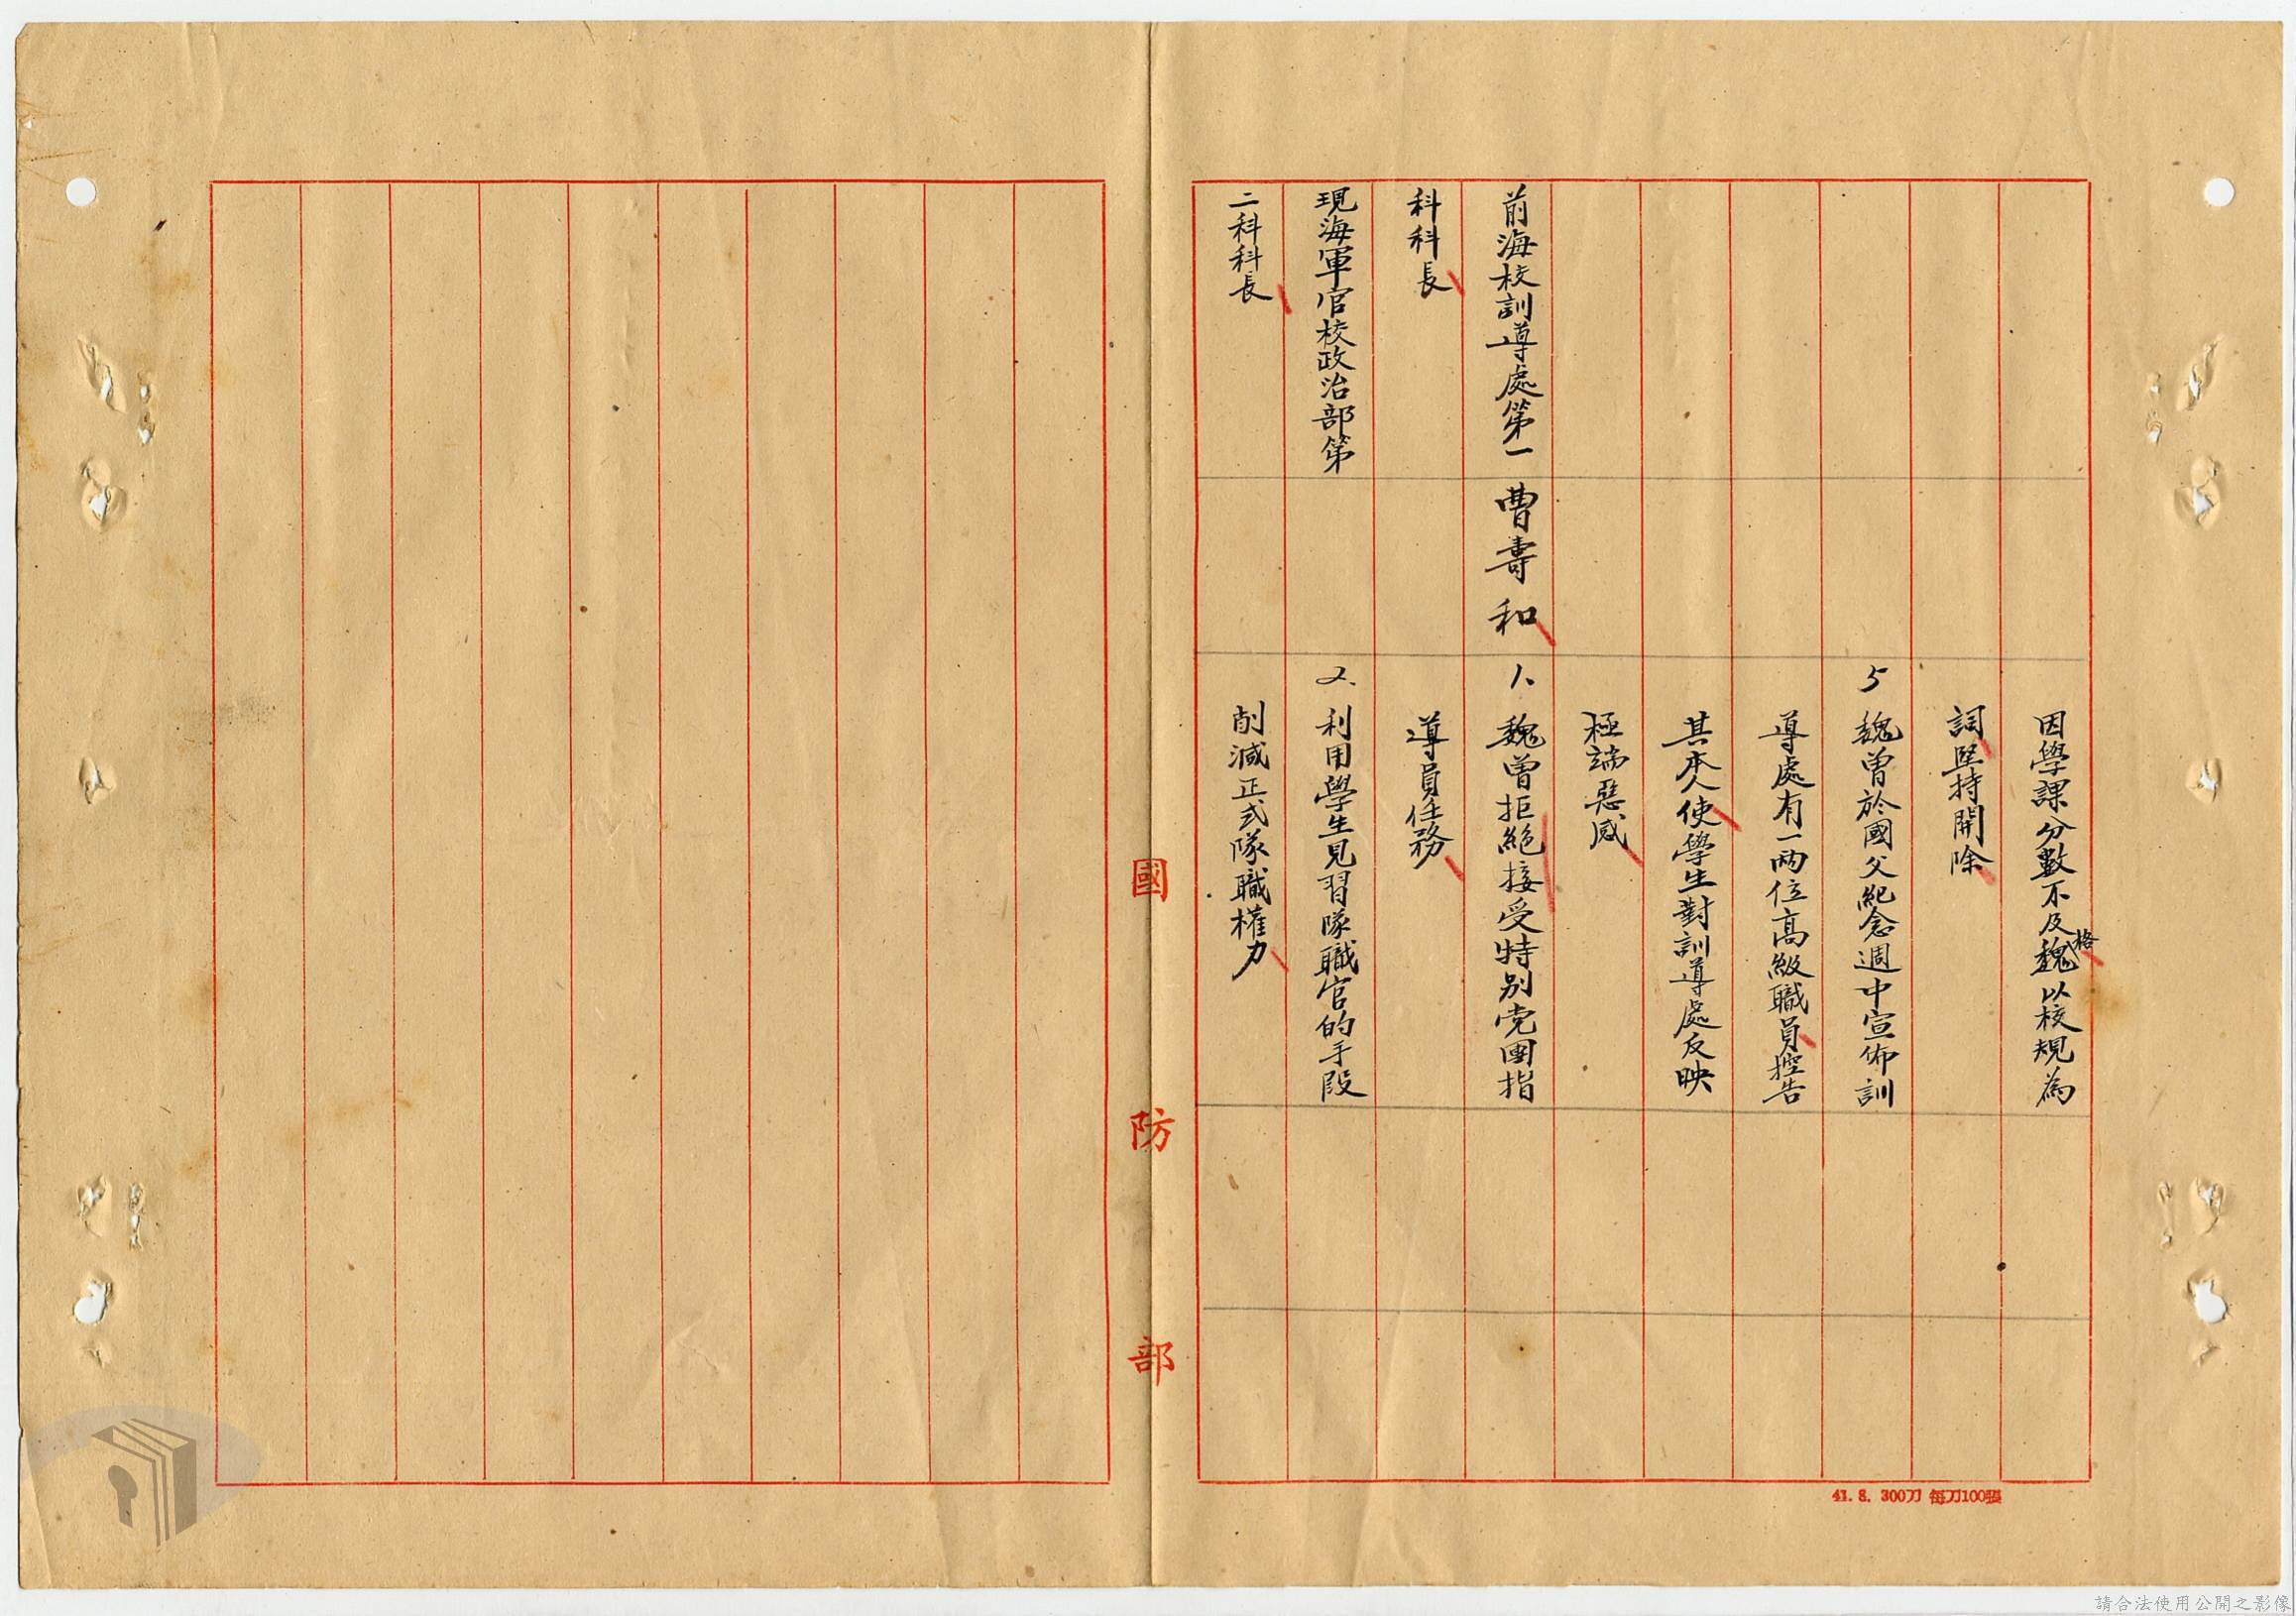 因學課分數不及格魏以校規為
詞堅持開除
5 魏曾於國父紀念週中宣佈訓
導處有一兩位高級職員控告
其本人使學生對訓導處反映
極端惡感
前海校訓導處第一
科科長
現海軍官校政治部第
二科科長
曹壽和
1、魏曾拒絕接受特別党團指
導員任務
2、利用學生見習隊職官的手段
削減正式隊職權力
國防部
41. 8. 300刀 每刀100張
請合法使用公開之影像